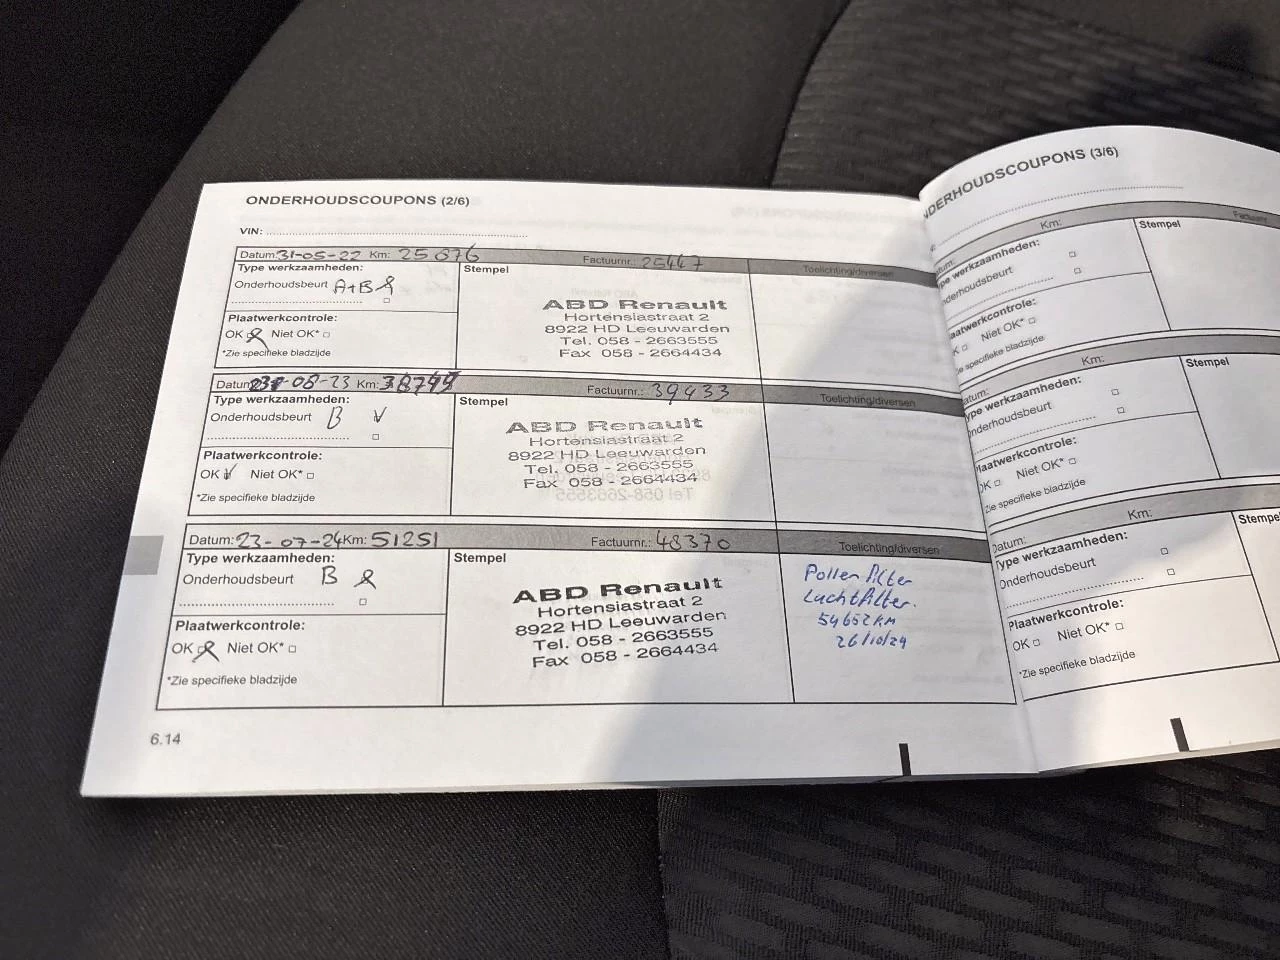 ONDERHOUDSCOUPONS (2/6)
VIN:
Datum: 31-05-22 Km: 25876 Factuurnr.: 25447 Toelichting/diversen
Type werkzaamheden:
Onderhoudsbeurt A+B
Plaatwerkcontrole:
OK Niet OK*
*Zie specifieke bladzijde
Stempel
ABD Renault
Hortensiastraat 2
8922 HD Leeuwarden
Tel. 058 - 2663555
Fax 058 - 2664434
Datum: -08-23 Km: Factuurnr.: 39433 Toelichting/diversen
Type werkzaamheden:
Onderhoudsbeurt B
Plaatwerkcontrole:
OK Niet OK*
*Zie specifieke bladzijde
Stempel
ABD Renault
Hortensiastraat 2
8922 HD Leeuwarden
Tel. 058 - 2663555
Fax 058 - 2664434
Datum: 23-07-24 Km: 51251 Factuurnr.: 48370 Toelichting/diversen
Type werkzaamheden:
Onderhoudsbeurt B
Plaatwerkcontrole:
OK Niet OK*
*Zie specifieke bladzijde
Stempel
ABD Renault
Hortensiastraat 2
8922 HD Leeuwarden
Tel. 058 - 2663555
Fax 058 - 2664434
Pollen filter
Luchtfilter.
54652 KM
26/10/24
6.14
NDERHOUDSCOUPONS (3/6)
Km:
Stempel
ype werkzaamheden:
nderhoudsbeurt
laatwerkcontrole:
K Niet OK*
e specifieke bladzijde
atum: Km:
Stempel
ype werkzaamheden:
nderhoudsbeurt
laatwerkcontrole:
OK Niet OK*
Zie specifieke bladzijde
Datum: Km:
Stempe
Type werkzaamheden:
Onderhoudsbeurt
Plaatwerkcontrole:
OK Niet OK*
*Zie specifieke bladzijde